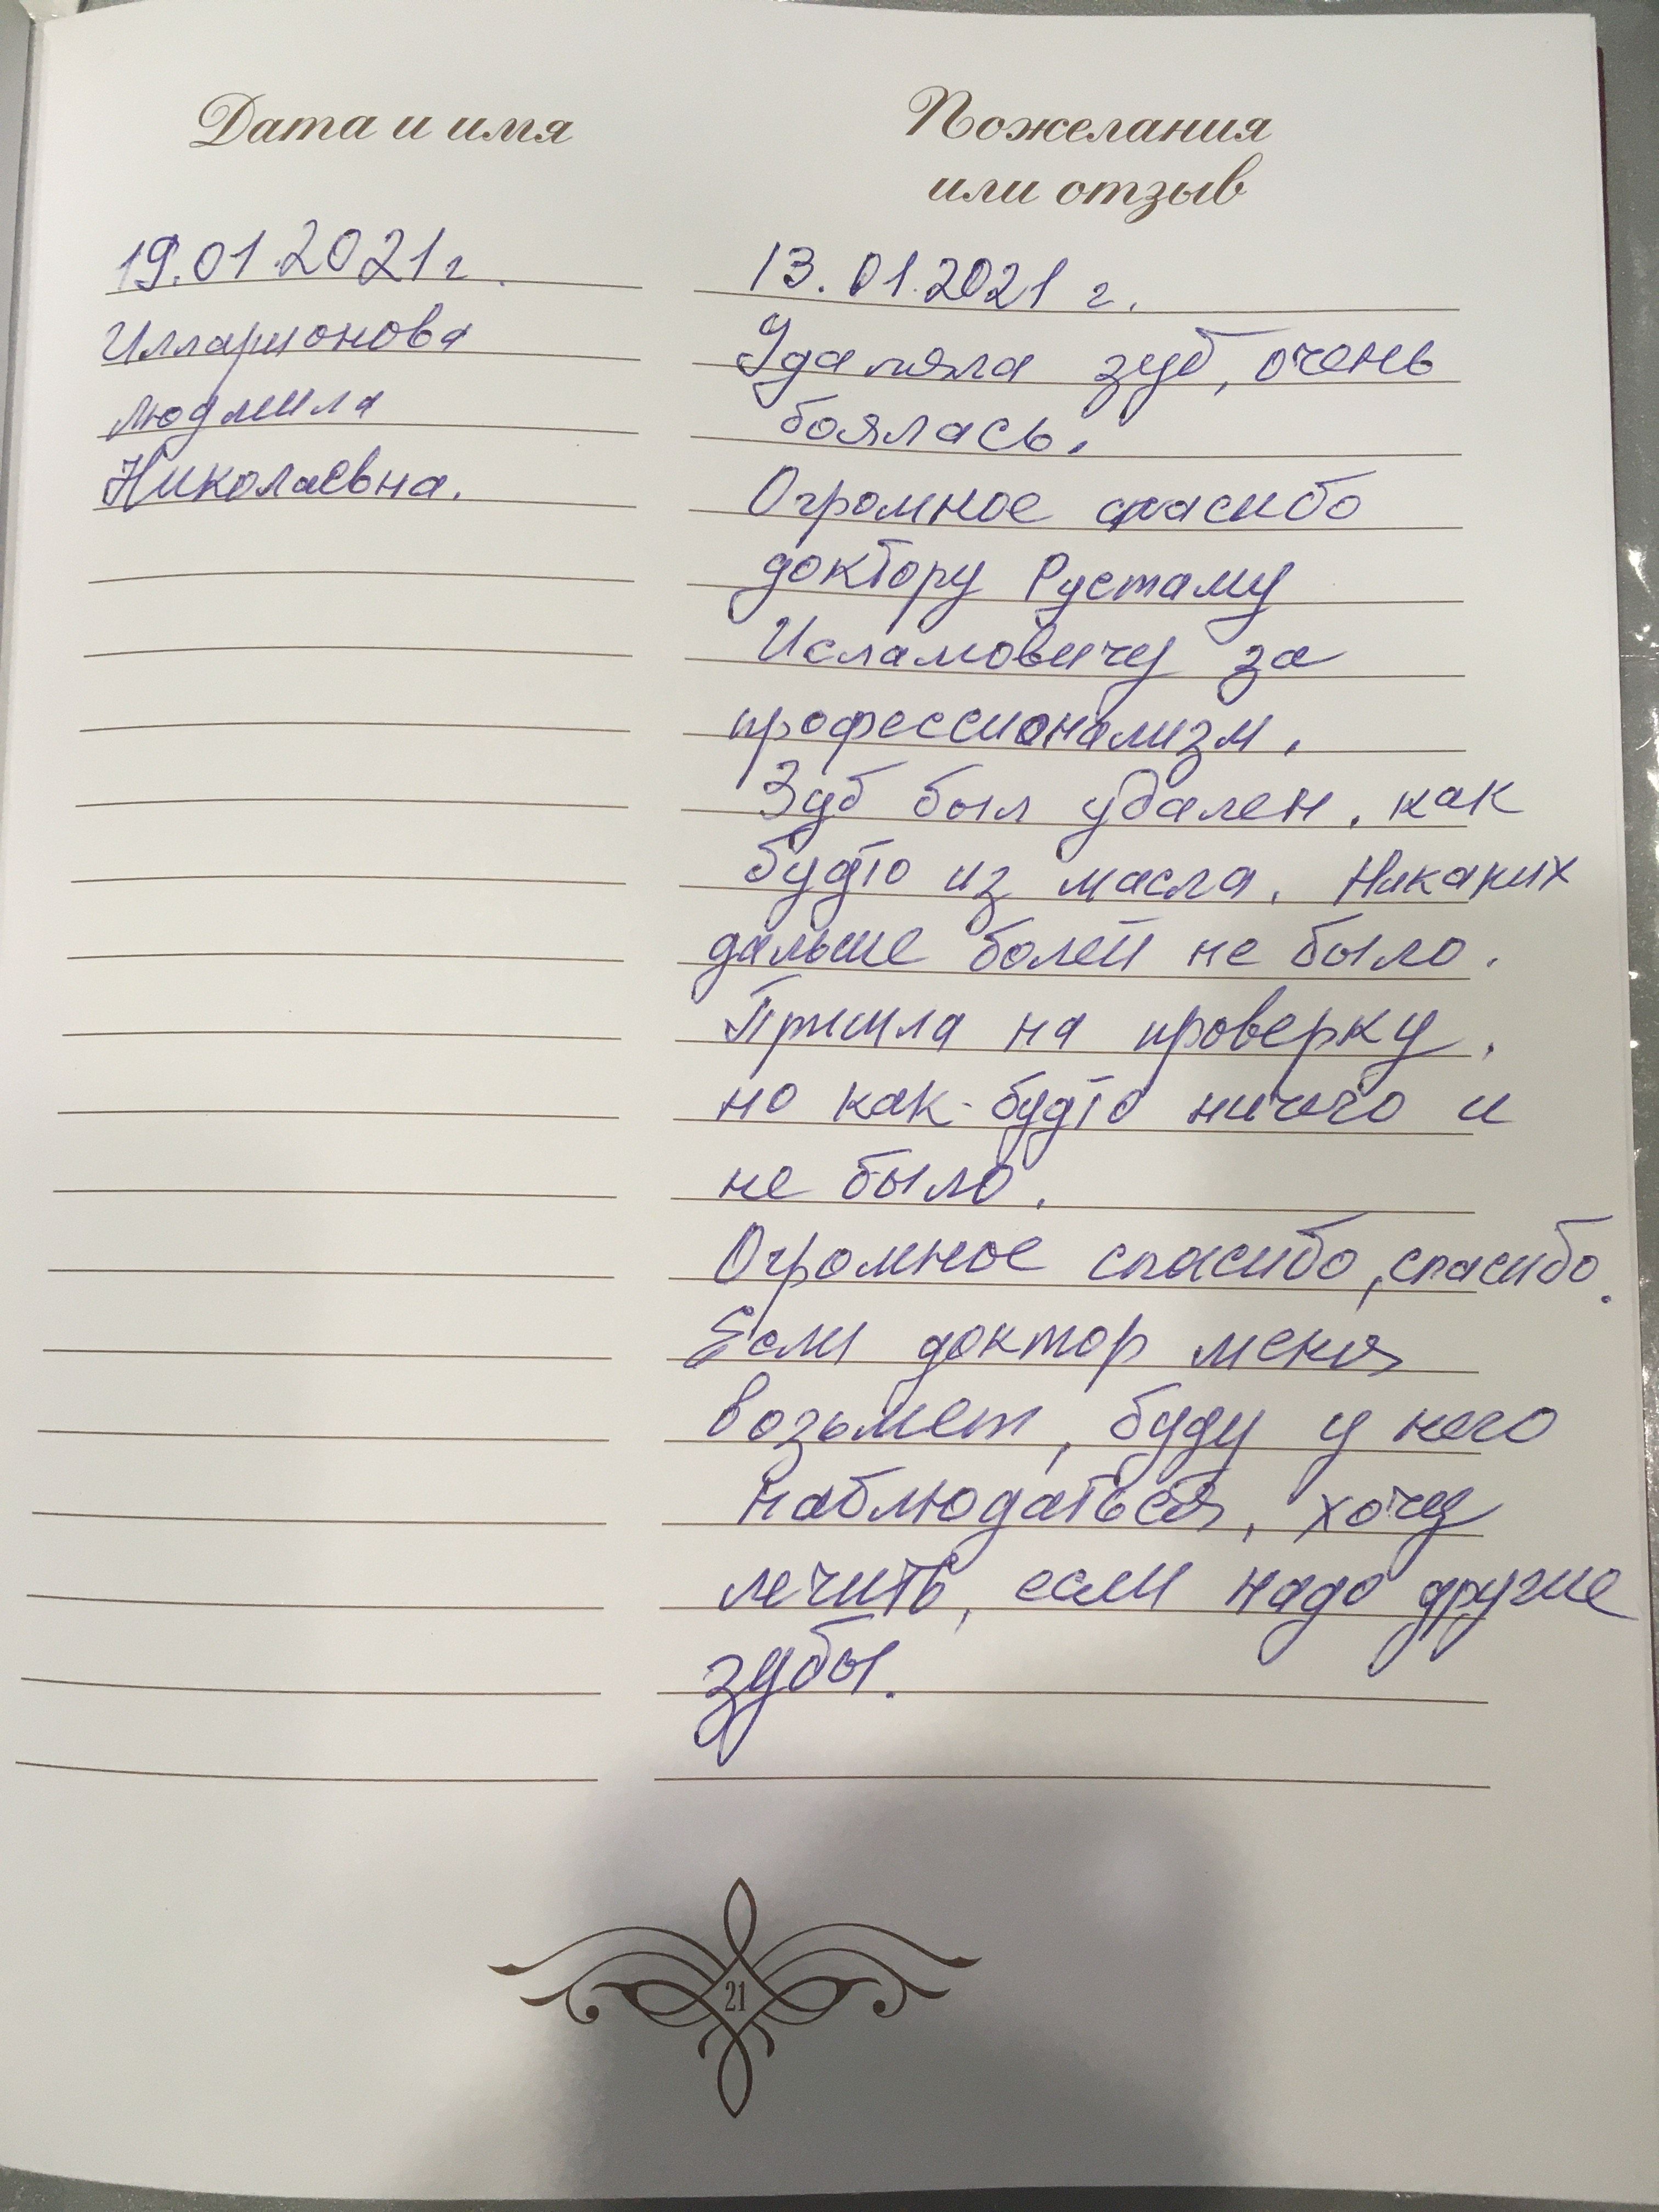 Дата и имя
19.01.2021г.
Илларионова
Людмила
Николаевна.
Пожелания
или отзыв
13.01.2021 г.
Удаляла зуб, очень
боялась.
Огромное спасибо
доктору Рустаму
Исламовичу за
профессионализм.
Зуб был удален, как
будто из масла. Никаких
дальше болей не было.
Пришла на проверку,
но как-будто ничего и
не было.
Огромное спасибо, спасибо.
Если доктор меня
возьмет, буду у него
наблюдаться, хочу
лечить, если надо другие
зубы.
21